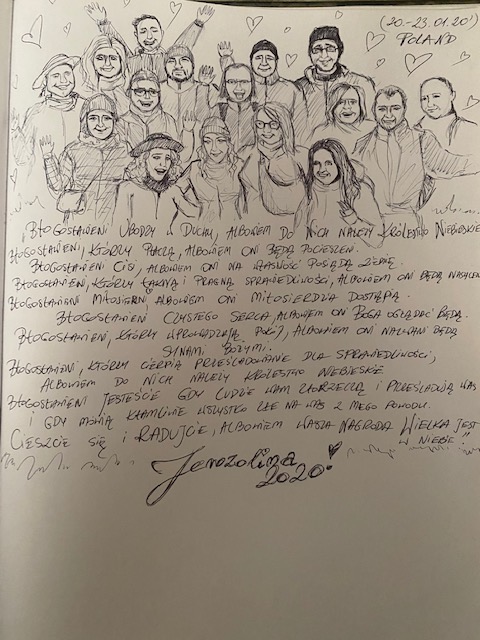 (20.-23.01.20')
POLAND
BŁOGOSŁAWIENI UBODZY W DUCHU, ALBOWIEM DO NICH NALEŻY KRÓLESTWO NIEBIESKIE
BŁOGOSŁAWIENI, KTÓRZY PŁACZĄ, ALBOWIEM ONI BĘDĄ POCIESZENI.
BŁOGOSŁAWIENI CISI, ALBOWIEM ONI NA WŁASNOŚĆ POSIĄDĄ ZIEMIĘ.
BŁOGOSŁAWIENI, KTÓRZY ŁAKNĄ I PRAGNĄ SPRAWIEDLIWOŚCI, ALBOWIEM ONI BĘDĄ NASYCENI
BŁOGOSŁAWIENI MIŁOSIERNI ALBOWIEM ONI MIŁOSIERDZIA DOSTĄPIĄ.
BŁOGOSŁAWIENI CZYSTEGO SERCA, ALBOWIEM ONI BOGA OGLĄDAĆ BĘDĄ.
BŁOGOSŁAWIENI, KTÓRZY WPROWADZAJĄ POKÓJ, ALBOWIEM ONI NAZWANI BĘDĄ
SYNAMI BOŻYMI.
BŁOGOSŁAWIENI, KTÓRZY CIERPIĄ PRZEŚLADOWANIE DLA SPRAWIEDLIWOŚCI,
ALBOWIEM DO NICH NALEŻY KRÓLESTWO NIEBIESKIE
BŁOGOSŁAWIENI JESTEŚCIE GDY LUDZIE WAM ZŁORZECZĄ I PRZEŚLADUJĄ WAS
I GDY MÓWIĄ KŁAMLIWIE WSZYSTKO ZŁE NA WAS Z MEGO POWODU.
CIESZCIE SIĘ I RADUJCIE, ALBOWIEM WASZA NAGRODA WIELKA JEST
W NIEBIE."
Jerozolima
2020